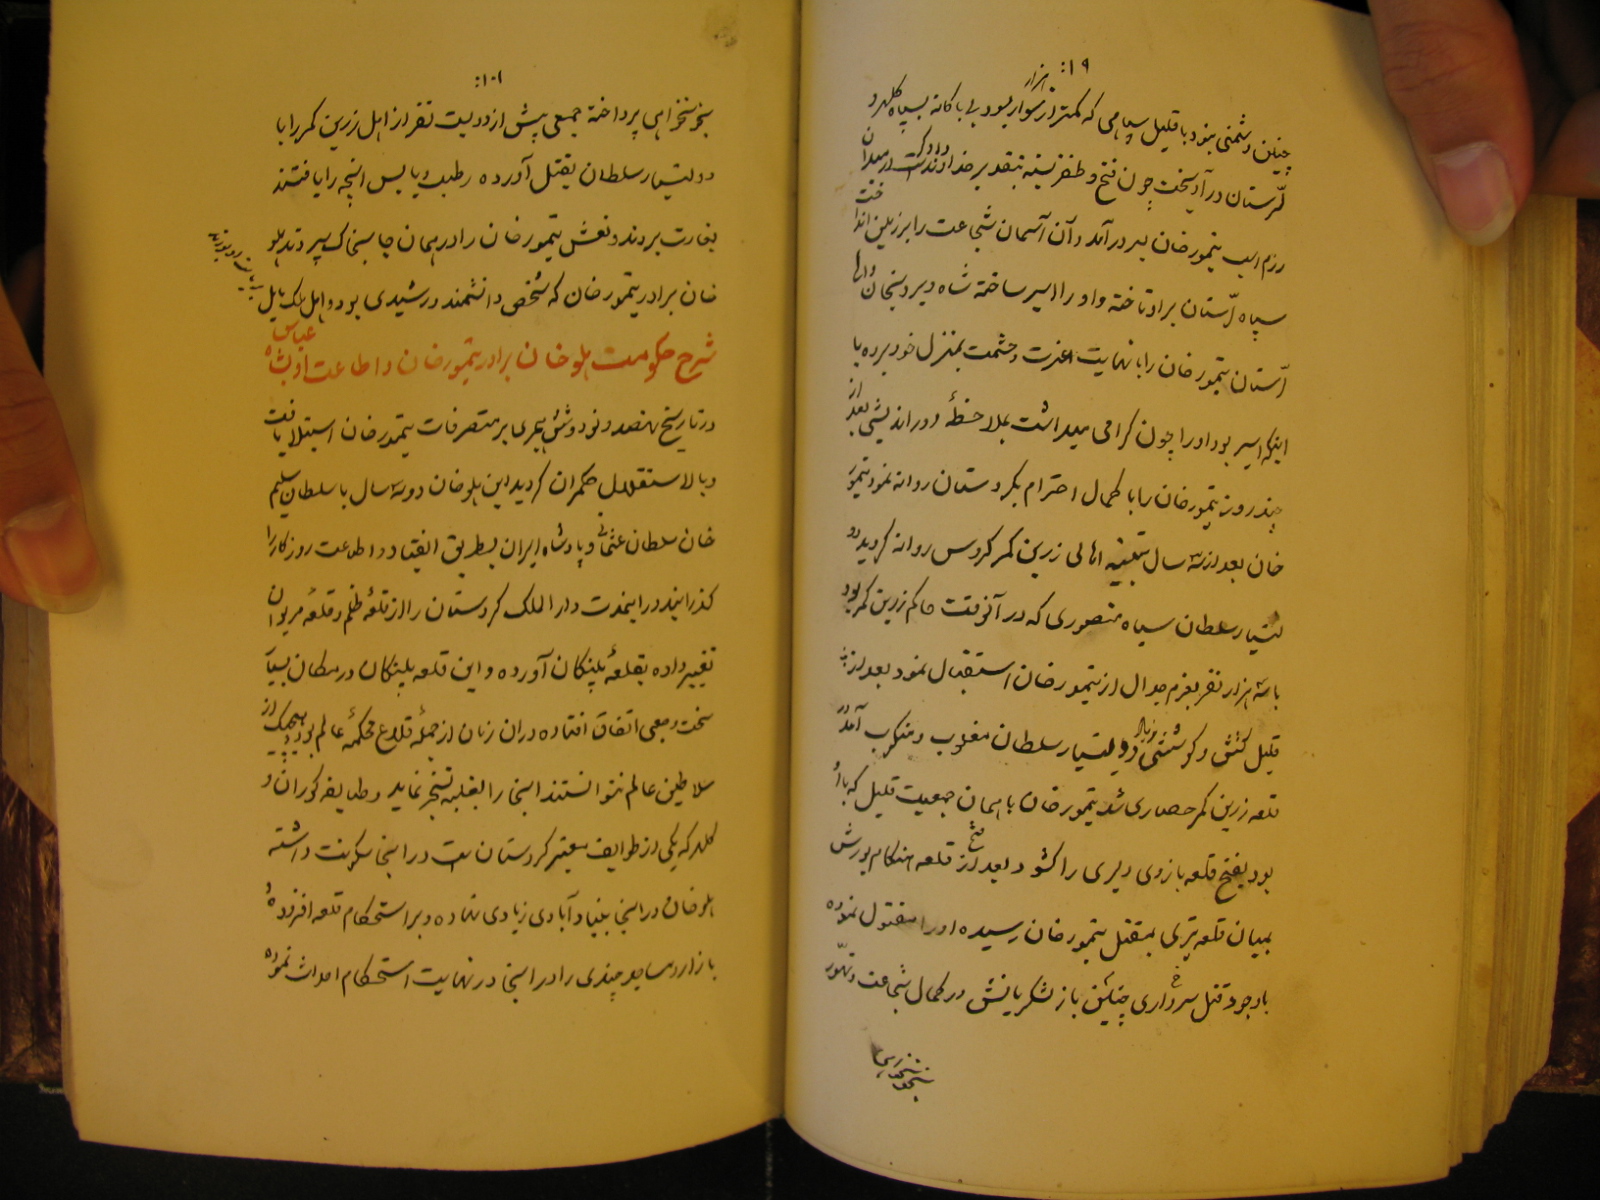 ۱۹:
چنین دشمنی بنود با قلیل سپاهی که کمتر از هزار سوار بود بی باکانه بسپاه کلهر و
لرستان در آویخت چون فتح و ظفر بسته بتقدیر خداوند است در میدان
رزم اسب تیمور خان بسر در آمد و آن آسمان شجاعت را بر زمین انداخت
سپاه لرستان بر او تاخته و او را اسیر ساخته شاه ویردیخان والی
لرستان تیمور خان را با نهایت عزت و حشمت بمنزل خود برده با
اینکه اسیر بود او را چون کرامی میداشت بملاحظهٔ دور اندیشی بعد از
چند روز تیمور خان را با کمال احترام بکردستان روانه نمود تیمور
خان بعد از سه سال بتنبیه اهالی زرین کمر کروس روانه کردید دو
لتیار سلطان سیاه منصوری که در آنوقت حاکم زرین کمر بود
با سه هزار نفر بعزم جدال از تیمور خان استقبال نمود بعد از
قلیل کشش و کوششی دولتیار سلطان مغلوب و منکوب آمد در
قلعه زرین کمر حصاری شد تیمور خان با همان جمعیت قلیل که با او
بود بفتح قلعه بازوی دلیری را کشود بعد از فتح قلعه هنکام یورش
بمیان قلعه تیری بمقتل تیمور خان رسیده او را مقتول نموده
با وجود قتل سرداری چنین باز لشکریانش در کمال شجاعت و تهور
بخونخواهی
۱۰۱:
بخونخواهی پرداخته جمعی پیش از دویست نفر از اهل زرین کمر را با
دولتیار سلطان بقتل آورده رطب و یابس آنچه را یافتند
بغارت بردند و نعش تیمور خان را در همان جا بخاک سپردند هلو
خان برادر تیمور خان که شخص دانشمند و رشیدی بود و اهل ملک مایل
شرح حکومت هلو خان برادر تیمور خان و اطاعت او بشاه عباس
در تاریخ نهصد و نود و شش هجری بر متصرفات تیمور خان استیلا یافت
و بالاستقلال حکمران کردید این هلو خان دو سه سال با سلطان سلیم
خان سلطان عثمانی و پادشاه ایران بطریق انقیاد و اطاعت روزکار را
کذرانید در اینمدت دار الملک کردستان را از قلعهٔ ظلم و قلعه مریوان
تغییر داده بقلعهٔ پلنکان آورده و این قلعه پلنکان در مکان بسیار
سخت و جعی اتفاق افتاده در ان زمان از جملهٔ قلاع محکمهٔ عالم بود هیچیک از
سلاطین عالم نتوانستند انجا را بغلبه تسخیر نماید و طایفه کوران و
کلهر که یکی از طوایف معتبر کردستان است در انجا سکونت داشته
هلو خان در انجا بنیاد آبادی زیادی نهاده و بر استحکام قلعه افزوده
بازار و مساجد چندی را در انجا در نهایت استحکام احداث نموده